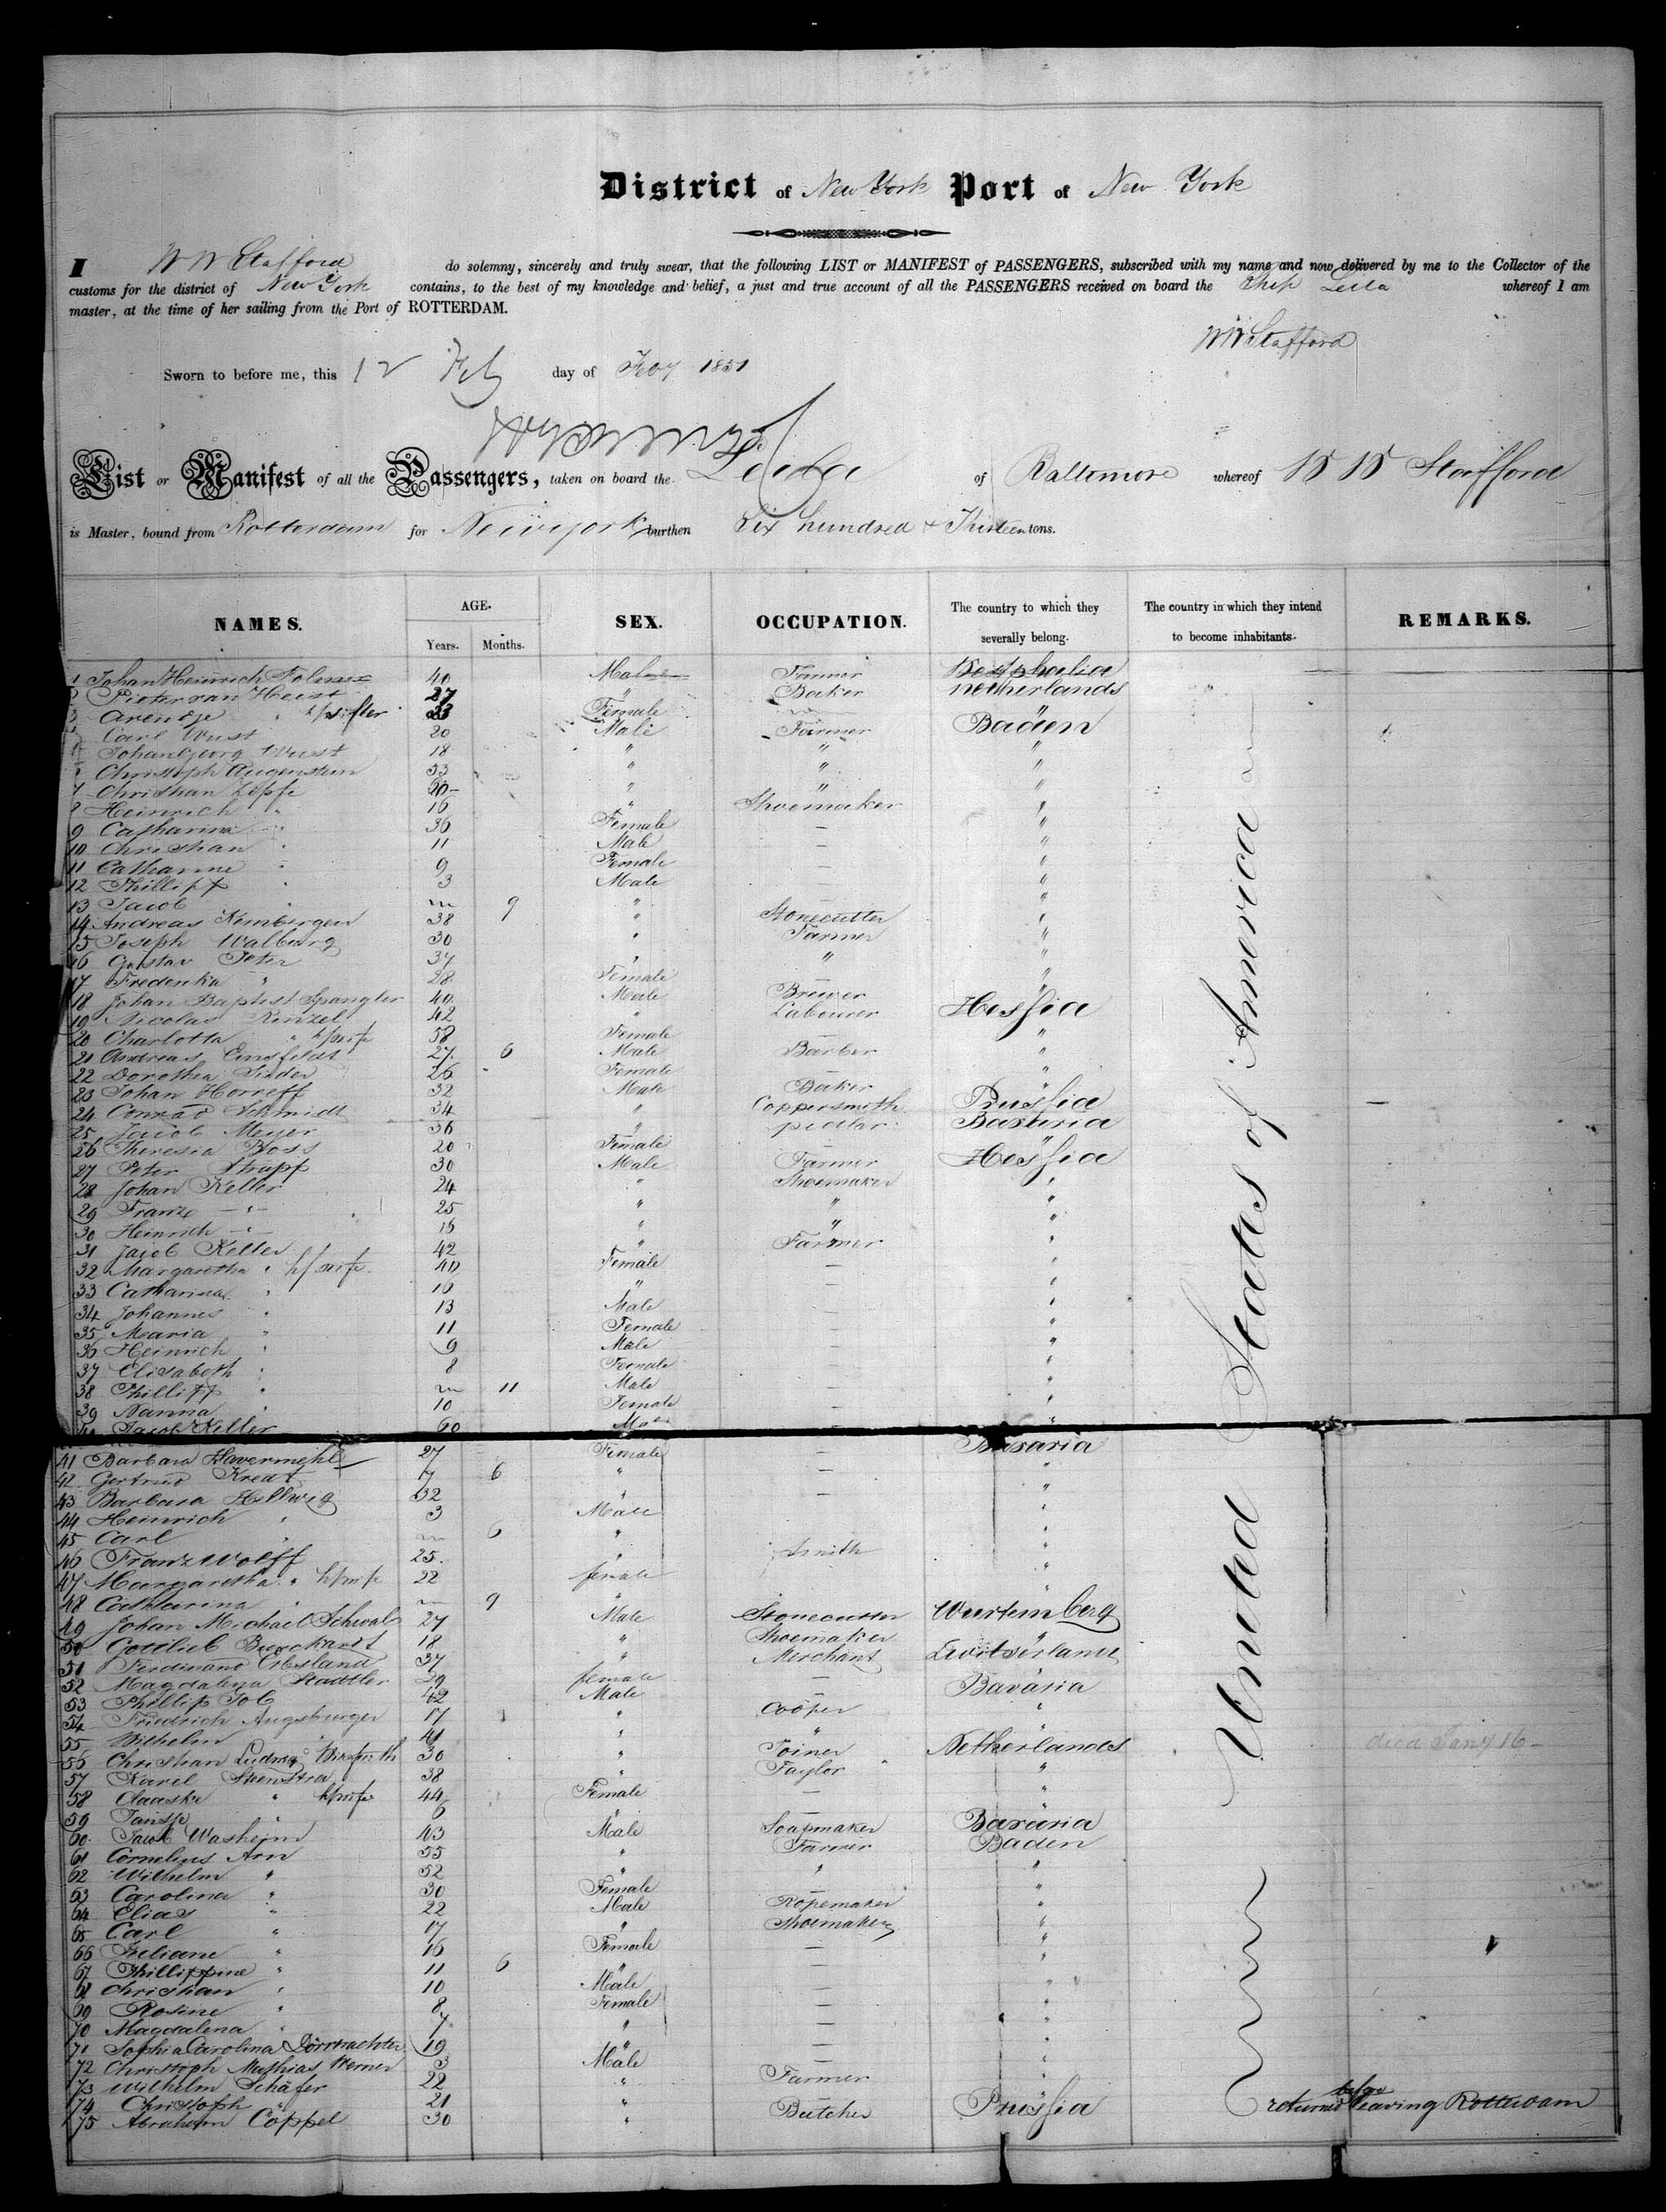 District of New York Port of New York
I W W Stafford do solemny, sincerely and truly swear, that the following LIST or MANIFEST of PASSENGERS, subscribed with my name and now delivered by me to the Collector of the
customs for the district of New York contains, to the best of my knowledge and belief, a just and true account of all the PASSENGERS received on board the Ship Leila whereof I am
master, at the time of her sailing from the Port of ROTTERDAM.
W W Stafford
Sworn to before me, this 12 Feb day of Feby 1851
List or Manifest of all the Passengers, taken on board the Leila of Baltimore whereof W W Stafford
is Master, bound from Rotterdam for Newyork burthen Six hundred & Thirteen tons.
NAMES. AGE. SEX. OCCUPATION. The country to which they severally belong. The country in which they intend to become inhabitants. REMARKS.
Years. Months.
United States of America
1 Johan Heinrich 40 Male Farmer Westphalia
2 Pieter van Heest 27 " Baker netherlands "
3 Arendje " Female "
Carl Wust 20 Male Farmer Baden
Johan Georg Wust 18 " " "
Christoph Augenstein 33 " " "
7 Christian Zepfe " " "
8 Heinrich " 16 " Shoemaker "
9 Catharina " 36 Female — "
10 Christian " 11 Male — "
11 Catharine " 9 Female — "
12 Phillipp " 3 Male — "
13 Jacob " 9 " — "
14 Andreas Kimbergen 38 " Stonecutter "
15 Joseph Walburg 30 " Farmer "
16 Gustav Peter 37 " " "
17 Frederika " 28 Female — "
18 Johan Baptist Spangler 40 Male Brewer "
19 Nicolas Kinzel 42 " Labourer Hessia
20 Charlotta " h/wife 58 Female — "
21 Andreas Einsfeldt 27 6 Male Barber "
22 Dorothea 26 Female — "
23 Johan Horreff 32 Male Baker "
24 Conrad Schmidt 34 " Coppersmith Prussia
25 Jacob Meyer 36 " pedlar Bavaria
26 Theresia Boss 20 Female — "
27 Peter Strupf 30 Male Farmer Hessia
28 Johan Keller 24 " Shoemaker "
29 Franz —"— 25 " " "
30 Heinrich —"— 16 " " "
31 Jacob Keller 42 " Farmer "
32 Margaretha " h/wife 40 Female — "
33 Catharina " 16 " — "
34 Johannes " 13 Male — "
35 Maria " 11 Female — "
36 Heinrich " 9 Male — "
37 Elisabeth " 8 Female — "
38 Phillipp " 11 Male — "
39 Nanna " 10 Female — "
Jacob Keller 60 Male — "
41 Barbara Havermehl 27 Female — Bavaria
42 Gertrud Kreat 6 " — "
43 Barbara Hellwig 32 " — "
44 Heinrich " 3 Male "
45 Carl " 6 " "
46 Franz Wolff 25 " Smith "
47 Margaretha " h/wife 22 female "
48 Catharina " 9 " "
49 Johan Michael Schwab 27 Male Stonecutter Wurtemberg
50 Gottlieb Burckardt 18 " Shoemaker "
51 Ferdinand Erbsland 37 " Merchant Switserland
52 Magdalena Stadtler 29 female — Bavaria
53 Phillip Job 42 Male — "
54 Friedrich Augsburger 17 " Cooper "
55 Wilhelm " " " "
56 Christian Ludwig 30 " Joiner Netherlands died Jany 16
57 Karel 38 " Taylor "
58 Claaske " h/wife 44 Female — "
59 Jansje " 6 " — "
60 Jacob Washeim 43 Male Soapmaker Bavaria
61 Cornelius Arn 55 " Farmer Baden
62 Wilhelm " 52 " " "
63 Carolina " 30 Female — "
64 Elias " 22 Male Ropemaker "
65 Carl " 17 " Shoemaker "
66 Juliane " 16 Female — "
67 Phillippine " 11 6 " — "
68 Christian " 10 Male — "
69 Rosine " 8 Female — "
70 Magdalena " 7 " — "
71 Sophia Carolina Dörrwachter 19 " — "
72 Christoph Mathias Werner 3 Male — "
73 Wilhelm Schäfer 22 " Farmer "
74 Christoph " 21 " " "
75 Abraham Coppel 30 " Butcher Prussia returned before leaving Rotterdam